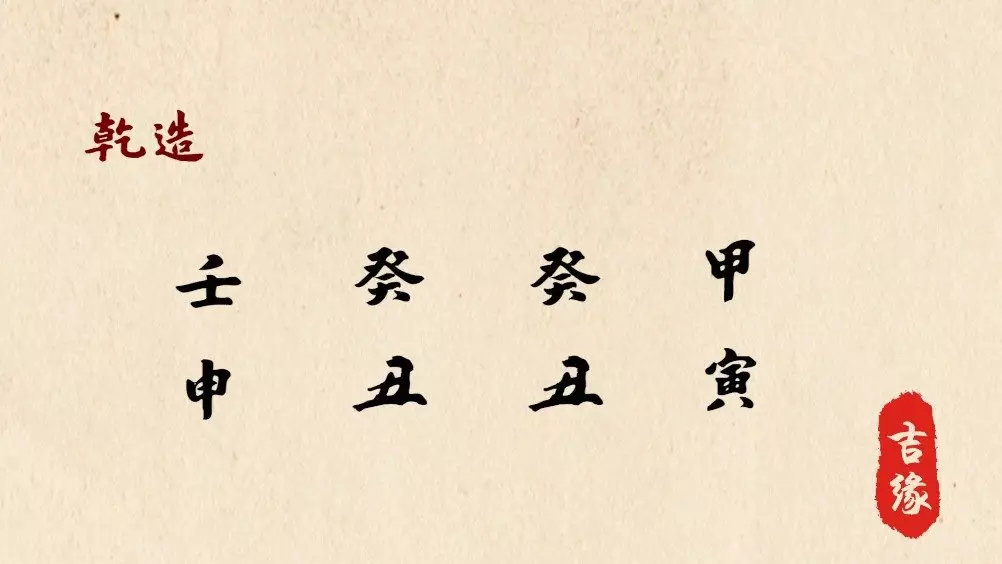 乾造
壬 癸 癸 甲
申 丑 丑 寅
吉缘